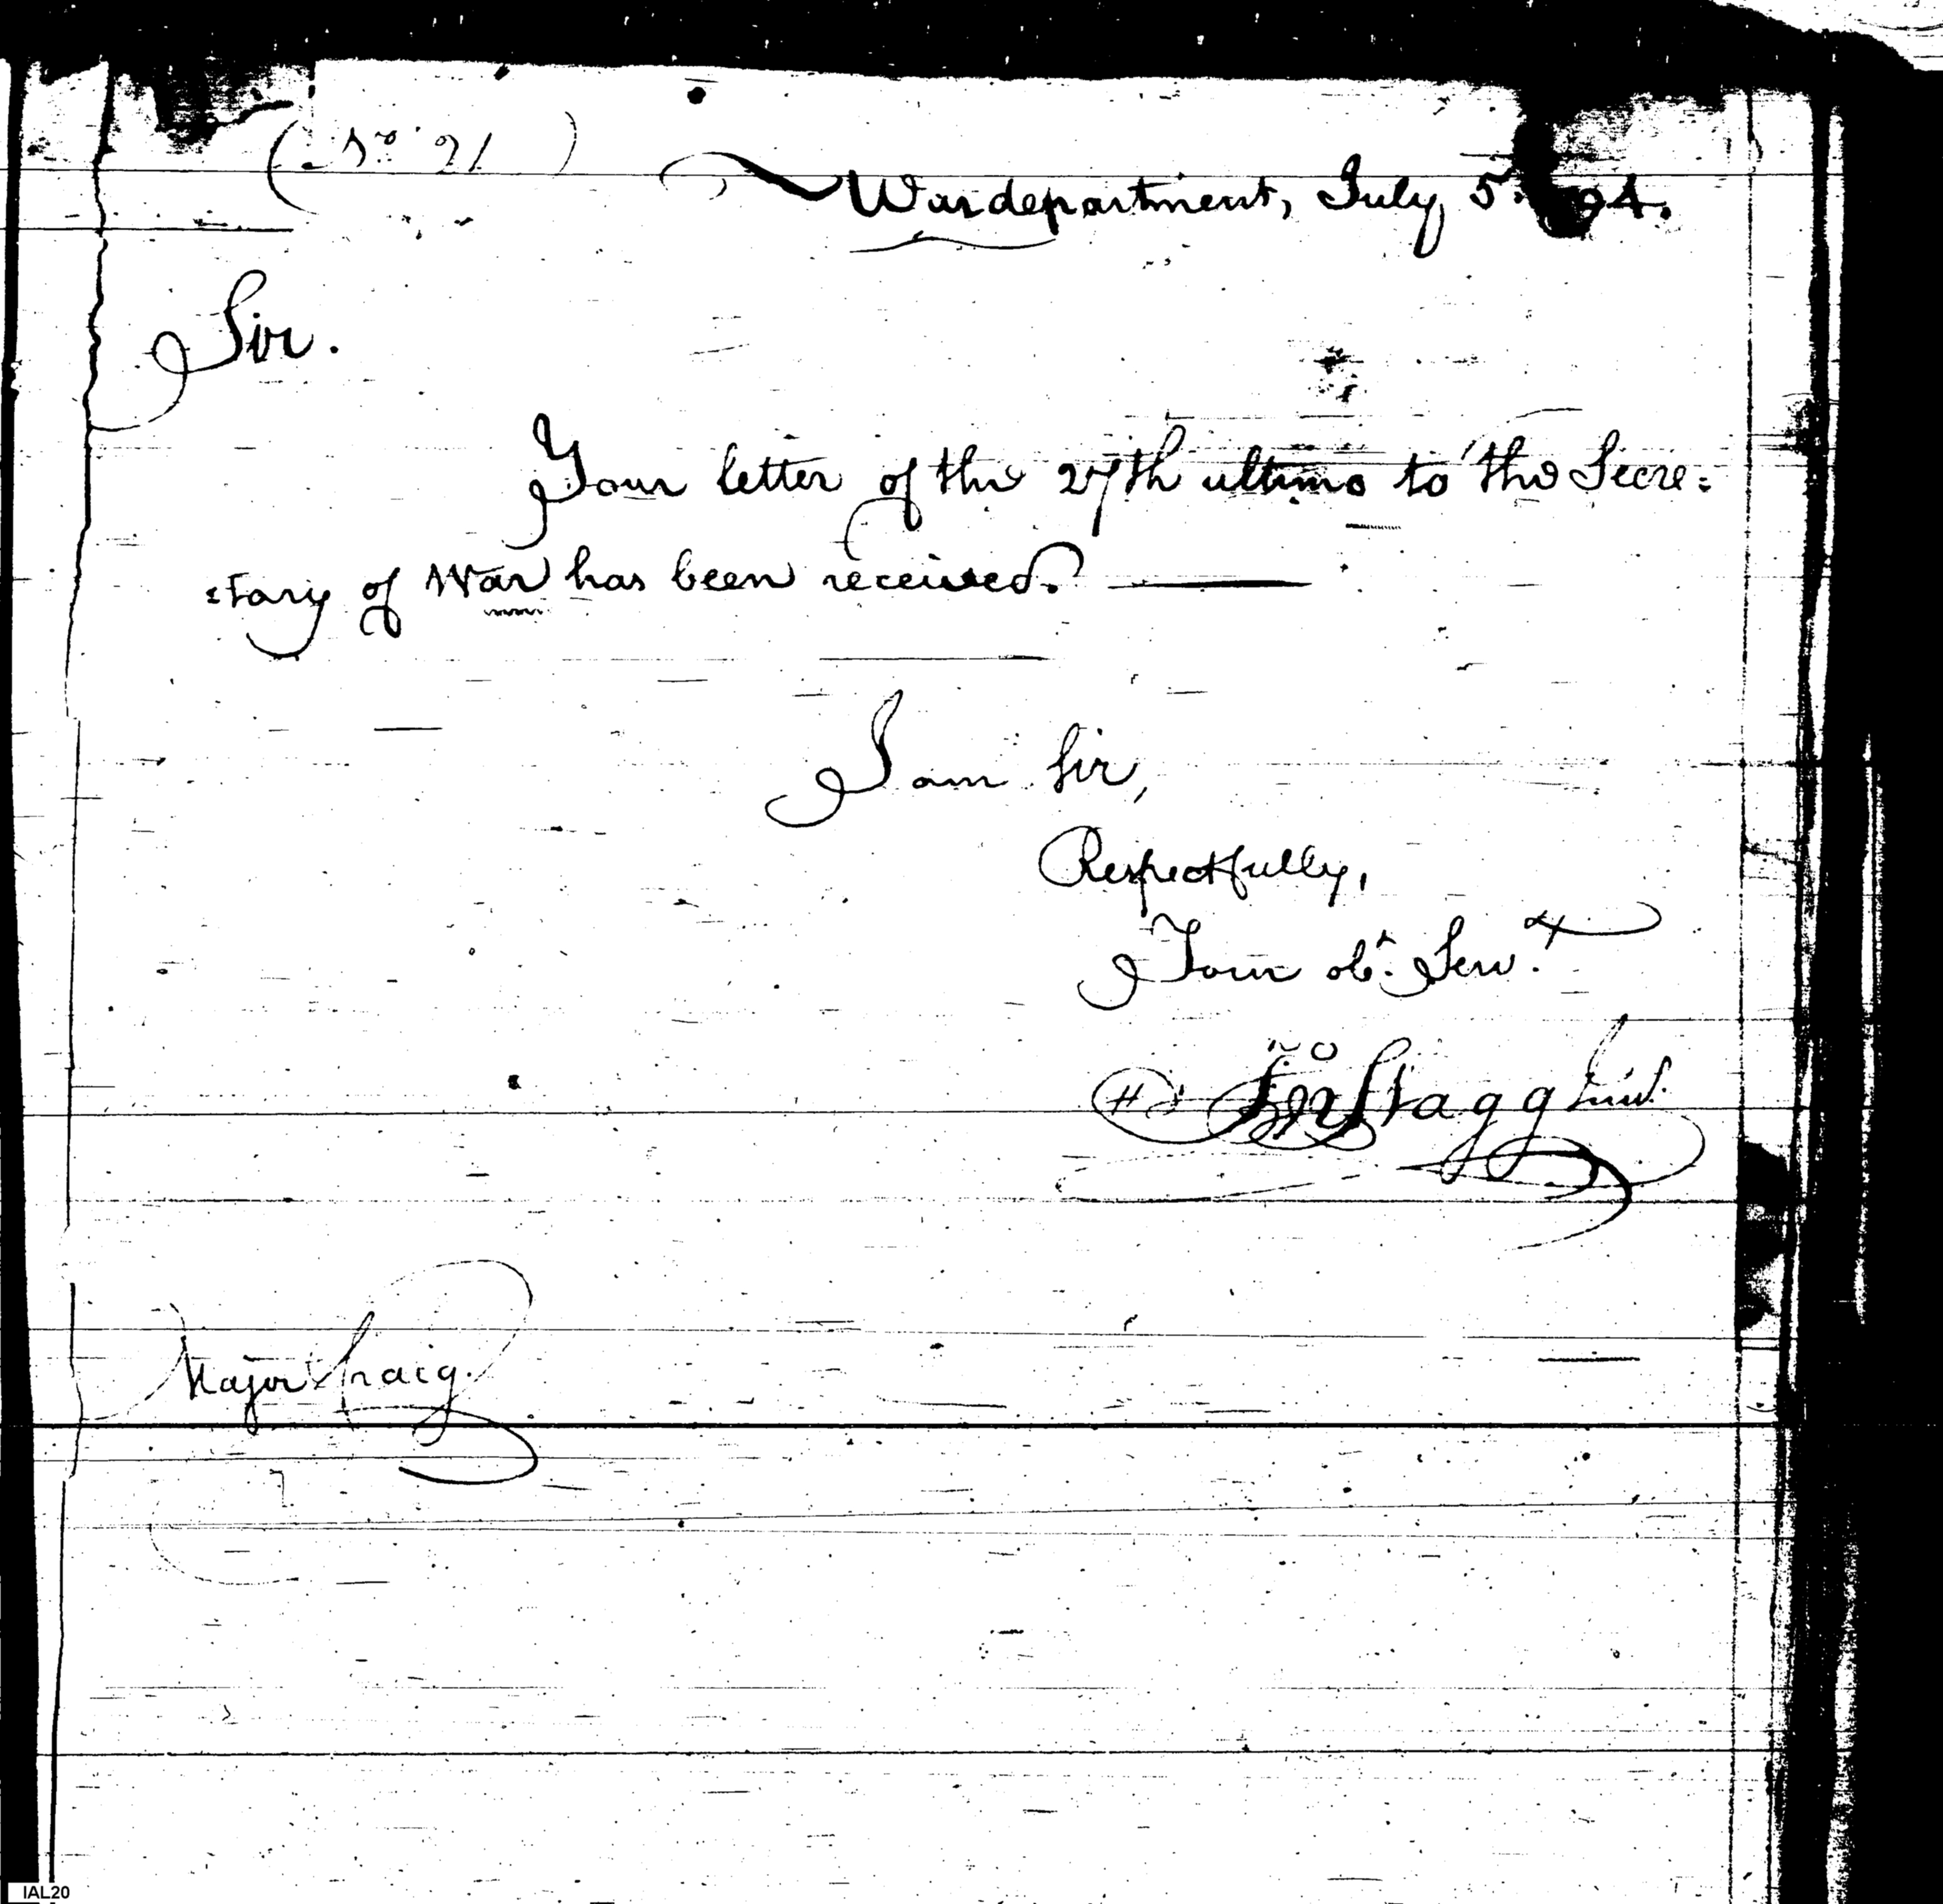 (No. 21)
War department, July 5. 94.
Sir.
Your letter of the 27th ultimo to the Secre=
=tary of War has been received.
I am Sir,
Respectfully,
Your obt. Servt
Jno Stagg Junr.
Major Craig.
IAL20